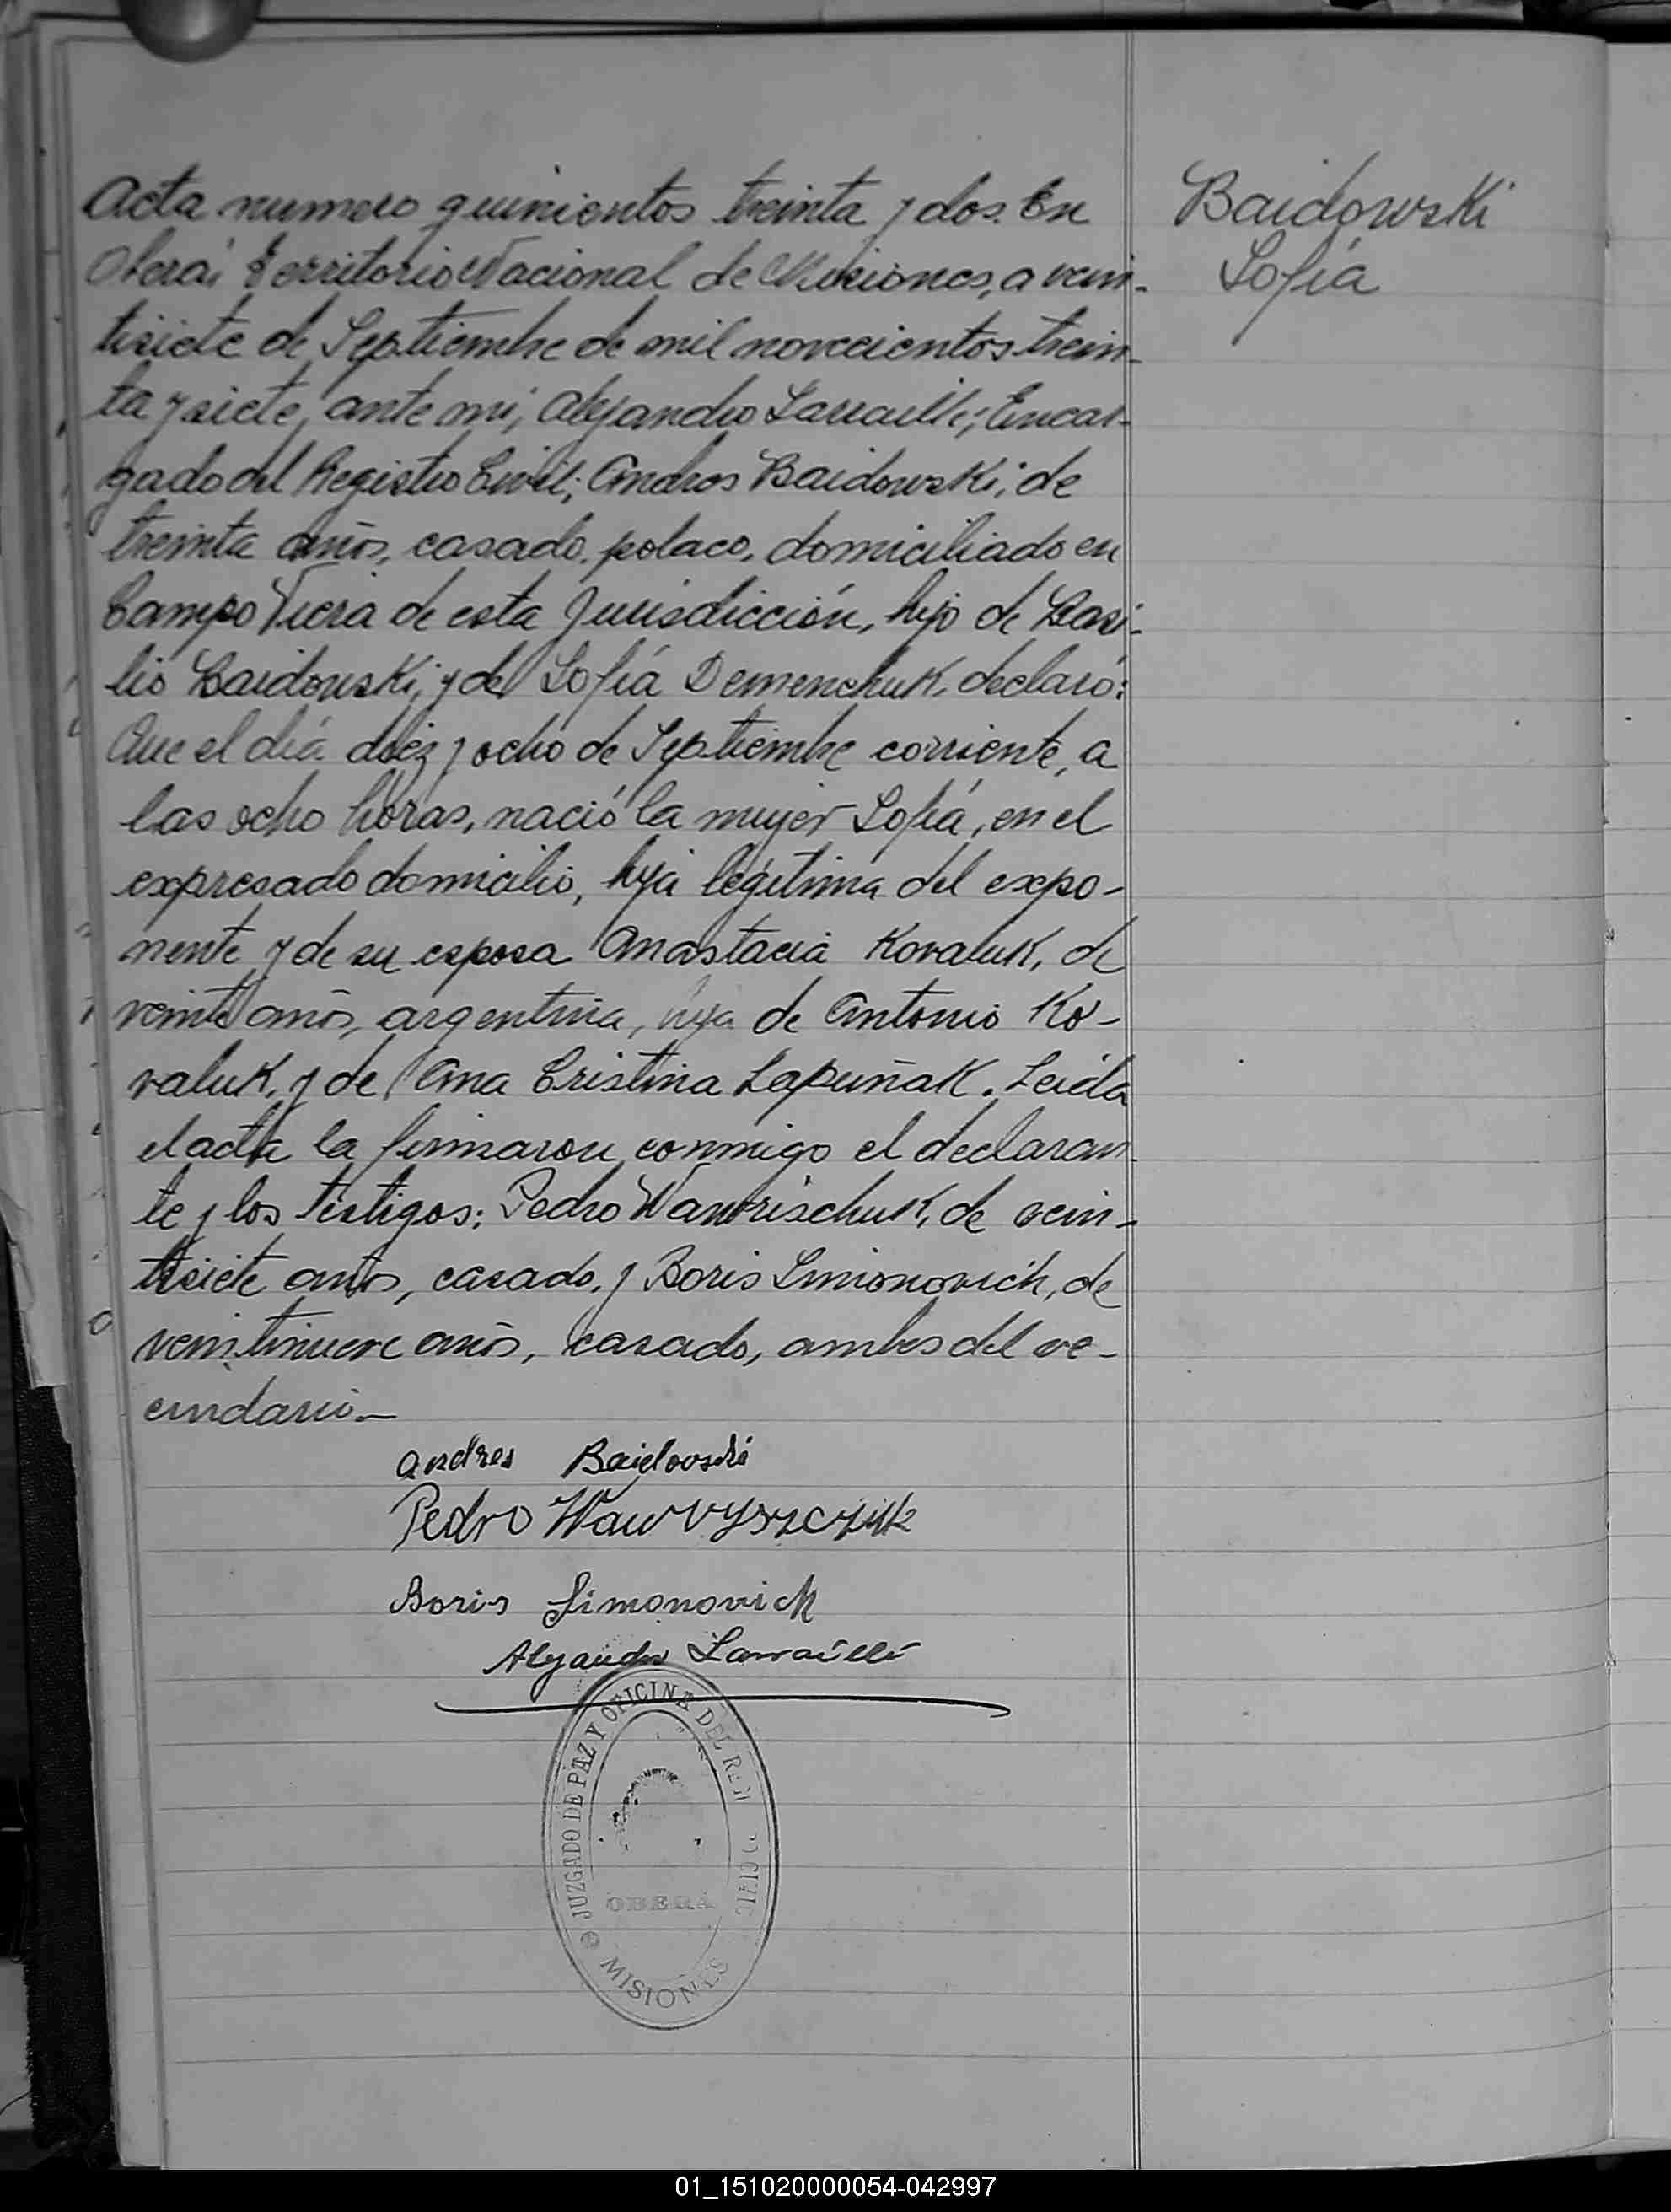 Acta numero quinientos treinta y dos. En
Oberá, Territorio Nacional de Misiones, a vein-
tisiete de Septiembre de mil novecientos trein-
ta y siete, ante mi, Alejandro Larraillé; Encar-
gado del Registro Civil; Andres Baidowski, de
treinta años, casado, polaco, domiciliado en
Campo Viera de esta Jurisdicción, hijo de Basi-
lio Baidowski, y de Sofía Demenchuk, declaró:
Que el día diez y ocho de Septiembre corriente, a
las ocho horas, nació la mujer Sofía, en el
expresado domicilio, hija legítima del expo-
nente y de su esposa Anastacia Kovaluk, de
veinte años, argentina, hija de Antonio Ko-
valuk, y de Ana Cristina Lapuñak. Leida
el acta la firmaron conmigo el declaran
te y los testigos: Pedro Wawrischuk, de vein-
tisiete años, casado, y Boris Simonovich, de
veintinueve años, casado, ambos del ve-
cindario.-
Baidowski
Sofía
Andres Baidovski
Pedro Wawryszczuk
Boris Simonovich
Alejandro Larraillé
JUZGADO DE PAZ Y OFICINA DEL
OBERÁ
MISIONES
01_151020000054-042997